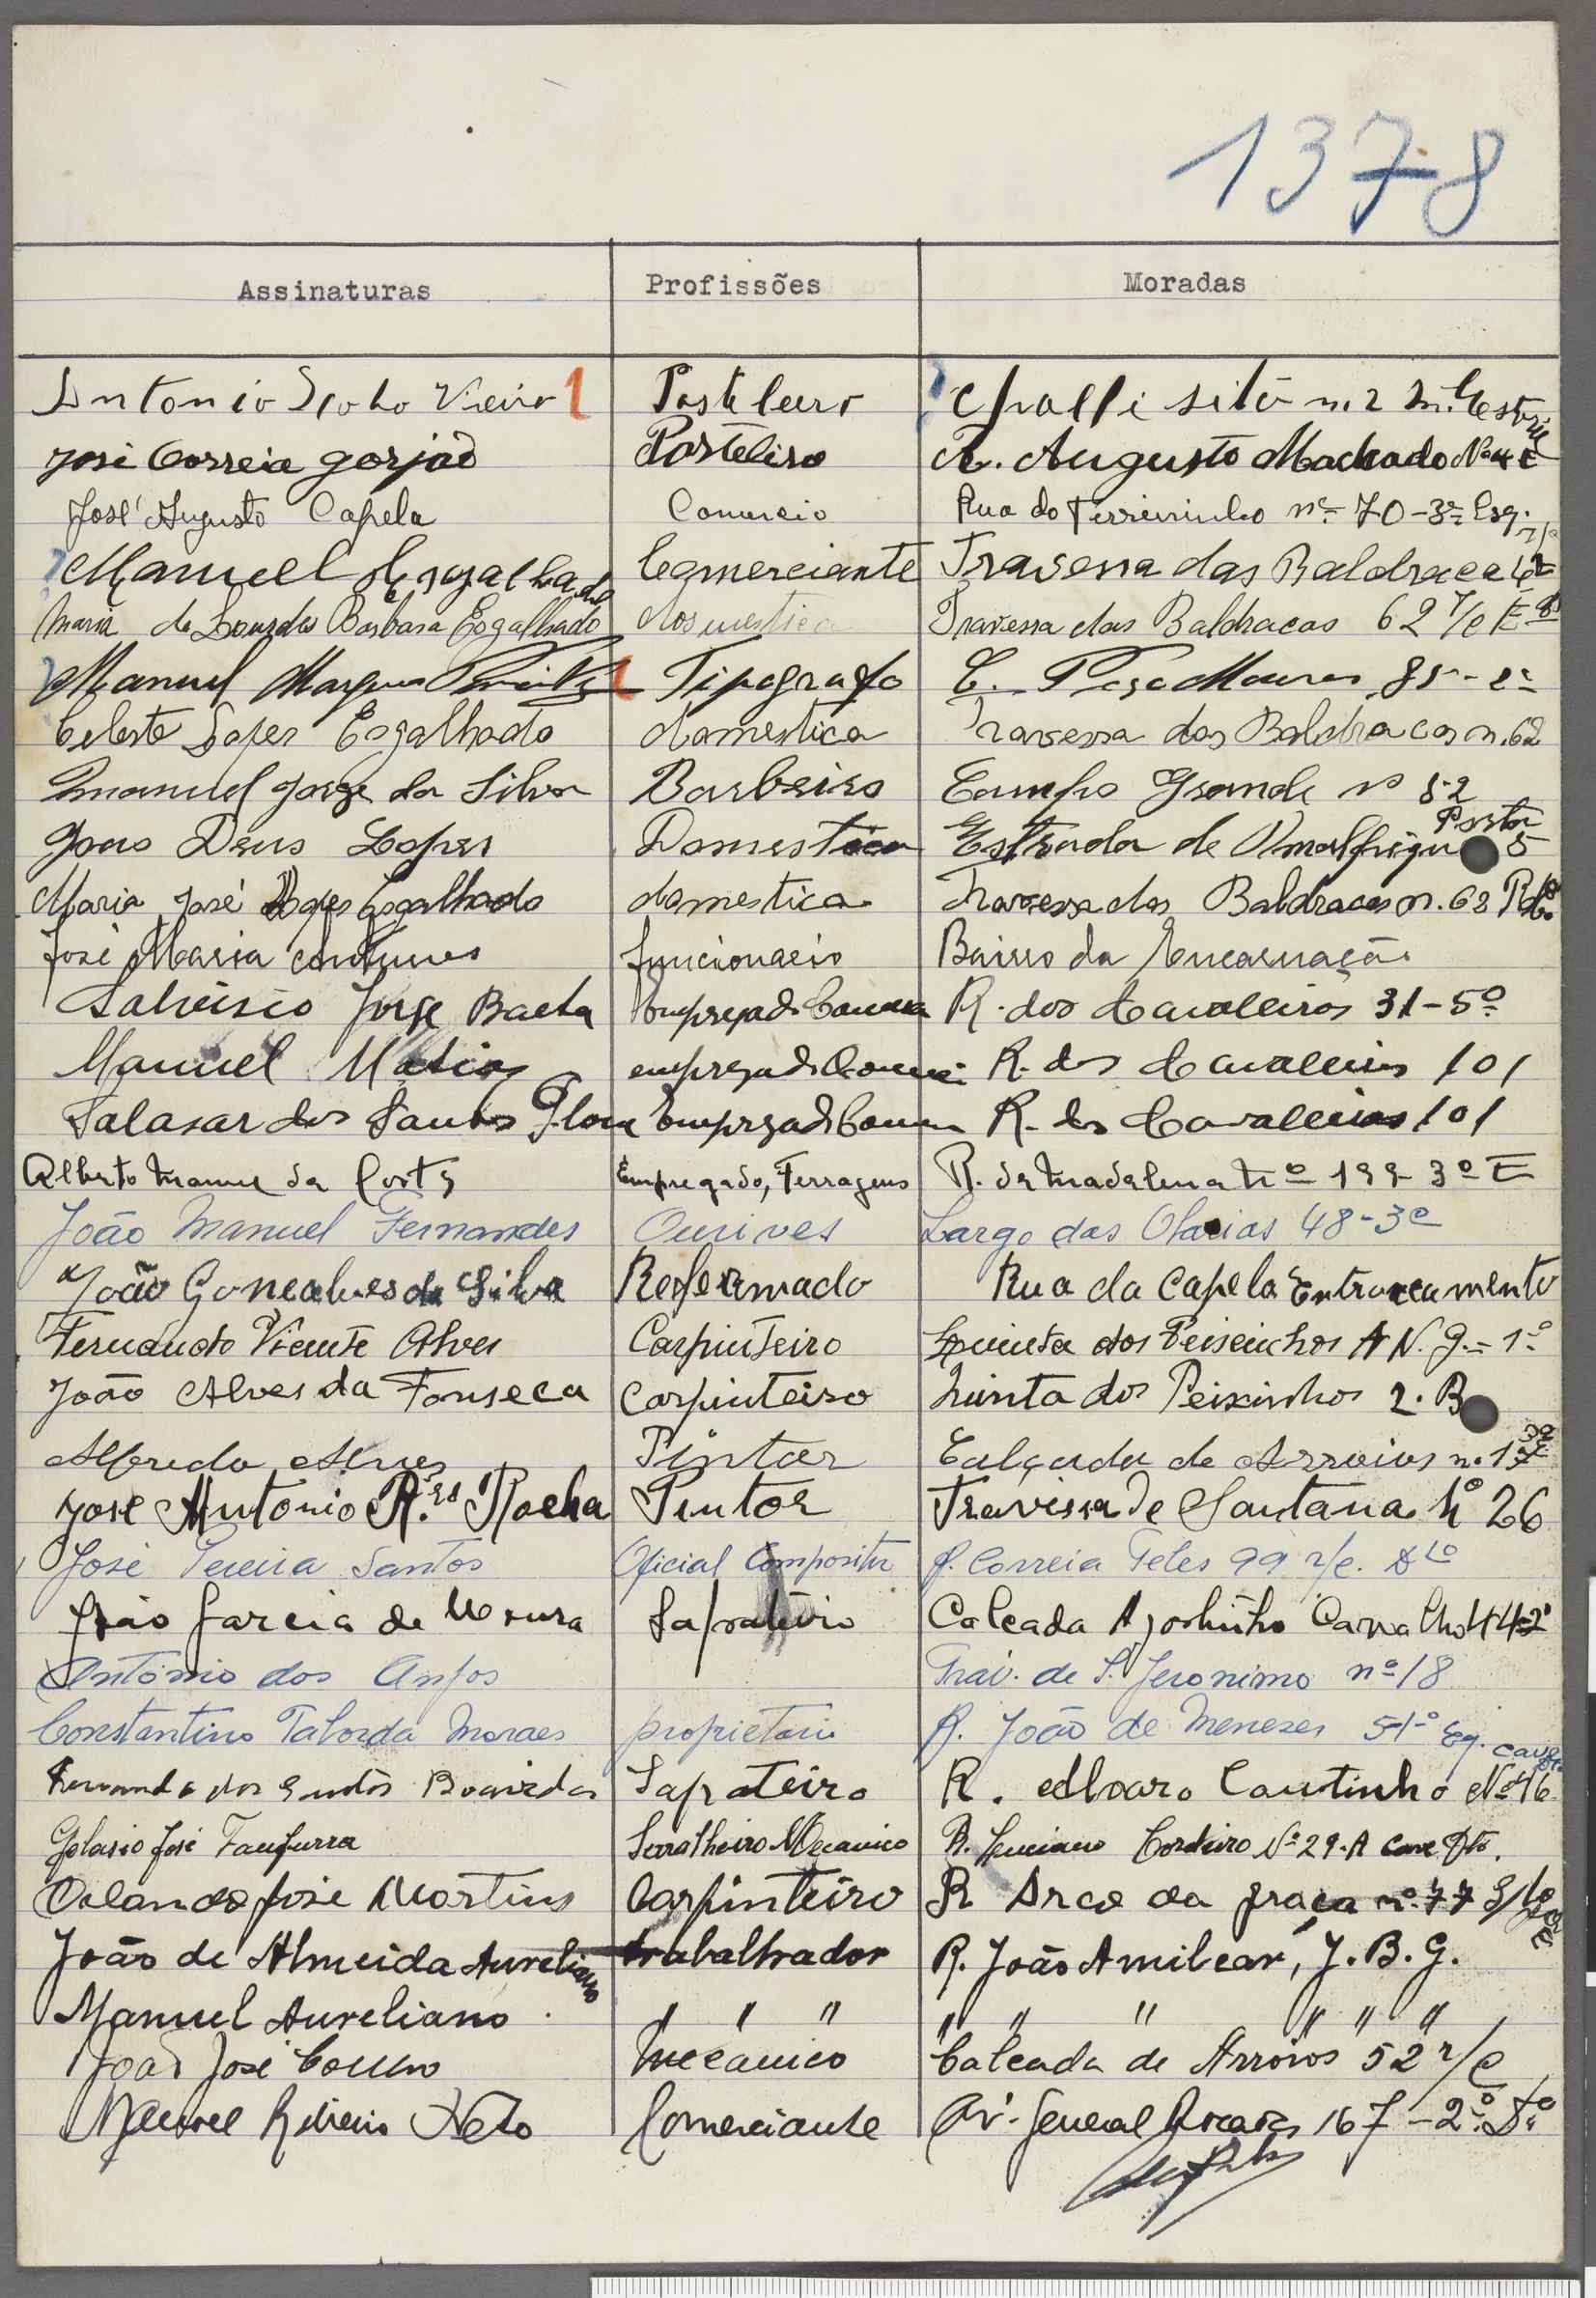 1378
Assinaturas Profissões Moradas
Antonio Vieira Pasteleiro n. 2
José Correia Gorjão Pasteliro R. Augusto Machado Nº 4 E
José Augusto Capela Comercio Rua do Terreirinho nº 70-3º Esq.
Manuel Esgalhado Comerciante Travessa das Baldraca
Maria de Lourdes Barbara Esgalhado domestica Travessa das Baldracas 62 r/c E
Manuel Marques Tipografo C. Poço Mouros 85
Celeste Lopes Esgalhado domestica Travessa das Baldracas n. 62
Emanuel Jorge da Silva Barbeiro Campo Grande nº 52
Joao Deus Lopes Domestica Estrada de Porta 5
Maria José Lopes Esgalhado domestica Travessa das Baldracas n. 62
José Maria Antunes funcionario Bairro da Encarnação
Jorge Baeta R. dos Cavalleiros 31-5º
Manuel Matias R. dos Cavalleiros 101
Salasar dos Santos R. dos Cavalleiros 101
Alberto da Costa Empregado, Ferragens R. da Madalena Nº 199 3º E
João Manuel Fernandes Ourives Largo das Olaias 48-3º
João Goncalves da Silva Reformado Rua da Capela Entroncamento
Fernando Vicente Alves Carpinteiro Quinta dos Peiseinhos A N. 9 - 1º
João Alves da Fonseca Carpinteiro Quinta dos Peixinhos 2. B
Alfredo Alves Pintor Calçada de Arroios n. 17
José Antonio R.es Rocha Pintor Travissa de Santana Nº 26
José Pereira Santos Oficial Compositor R. Correia Teles 99 r/c. Dto
João Garcia de Moura Sapateiro Calcada Agostinho Carvalho 44-2º
António dos Anjos Trav. de S. Jeronimo nº 18
Constantino Taborda Moraes proprietario R. João de Meneses 5-1º Eq.
Fernando dos Santos Sapateiro R. Alvaro Coutinho Nº 16 cave
José Fanfurra Serralheiro Mecanico R. Luciano Cordeiro Nº 29-A Cave Dto.
Orlando José Martins Carpinteiro R Arco da graça nº 77
João de Almeida Aureliano trabalhador R. João Amilcar, J. B. G.
Manuel Aureliano " " " " " " " " "
João José Mecanico Calcada de Arroios 52 r/c
Manuel Ribeiro Neto Comerciante Av. General Rocadas 167-2º Dº